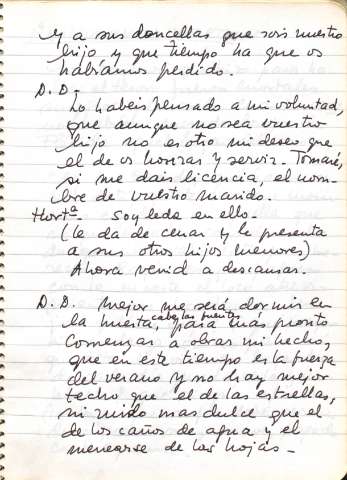 y a sus doncellas que sois nuestro
hijo y que tiempo ha que os
habíamos perdido.
D. D.-
Lo habeis pensado a mi voluntad,
que aunque no sea vuestro
hijo no es otro mi deseo que
el de os honrar y servir. Tomaré,
si me dais licencia, el nom-
bre de vuestro marido.
Hortª- Soy leda en ello.-
(le da de cenar y le presenta
a sus otros hijos menores)
Ahora venid a descansar.
D. D. Mejor me será dormir en
la huerta, cabe las fuentes, para más pronto
comenzar a obrar mi hecho,
que en este tiempo es la fuerza
del verano y no hay mejor
techo que el de las estrellas,
ni ruido mas dulce que el
de los caños de agua y el
menearse de las hojas.-